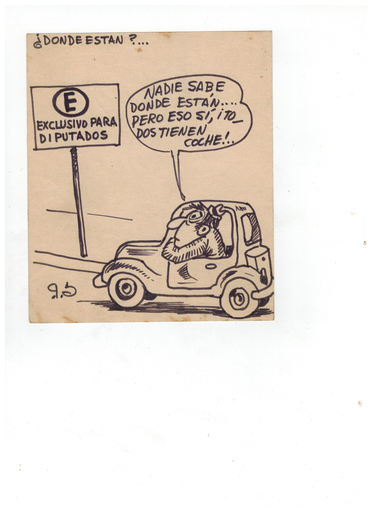 ¿DONDE ESTAN?....
E
EXCLUSIVO PARA
DIPUTADOS
NADIE SABE
DONDE ESTÁN....
PERO ESO SÍ, ¡TO_
DOS TIENEN
COCHE!..